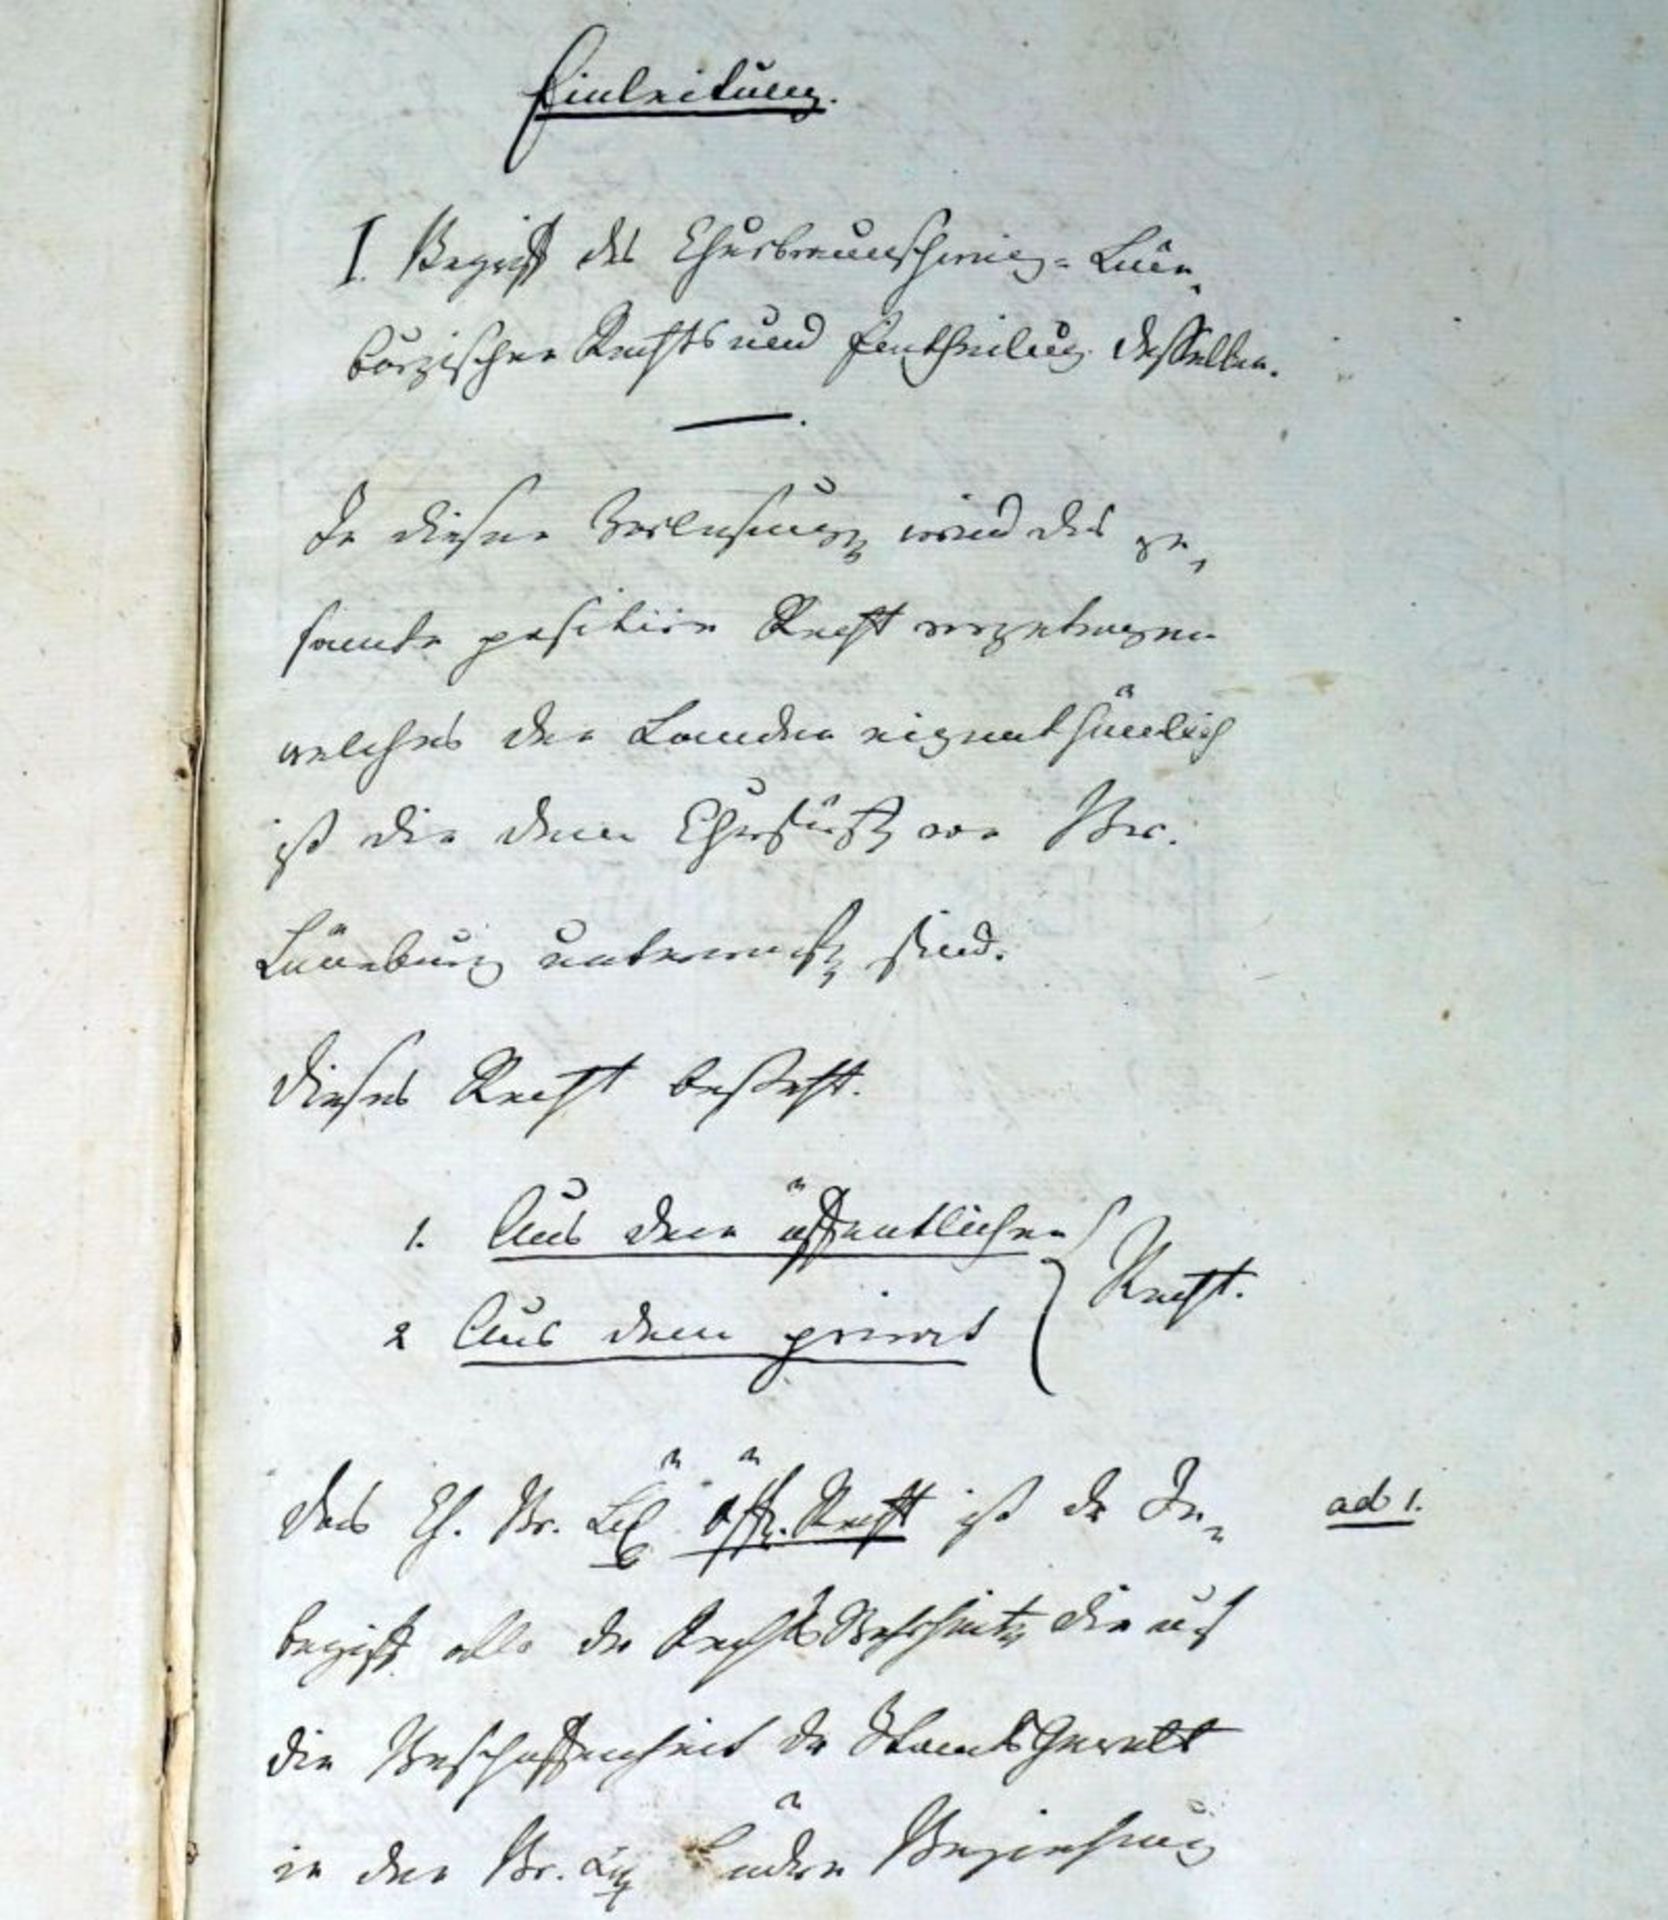 Einleitung.
I. Begriff des Churbraunschweig-Lüne-
burgischen Rechts und Eintheilung desselben.
In diesen Vorlesungen wird das ge-
samte positive Recht vorgetragen
welches den Landen eigenthümlich
ist die dem Churfürsten von Br.
Lüneburg unterworfen sind.
Dieses Recht besteht.
1. Aus dem öffentlichen
2 Aus dem privat
Recht.
Das Ch. Br. öff. Recht ist der In-
ad 1.
begriff alle der Rechts Wahrheiten die auf
die Beschaffenheit der Staats Gewalt
in den Br. Ländern Beziehung